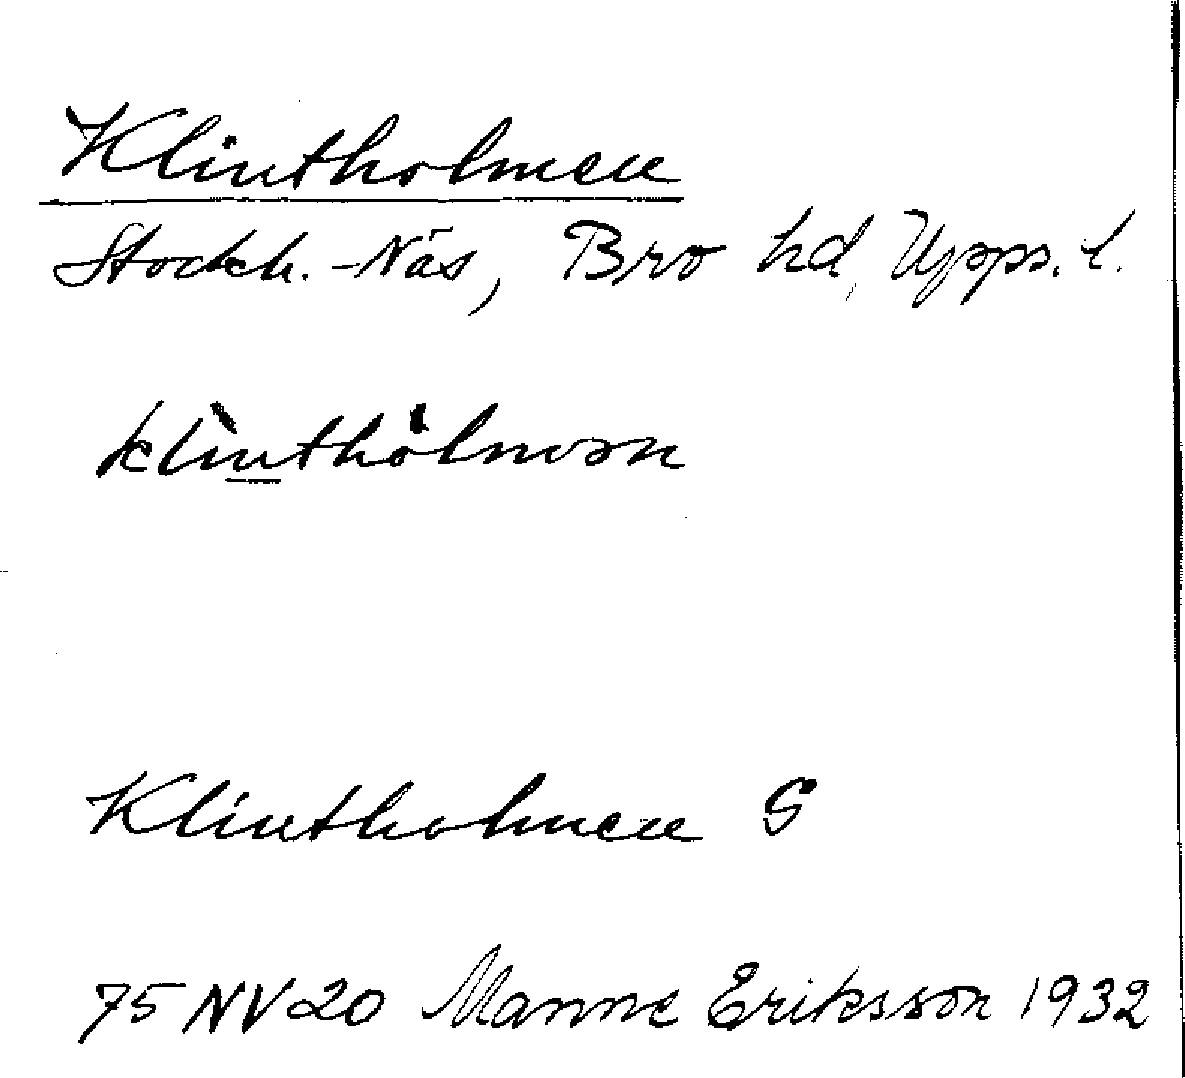 Klintholmen
Stockh.-Näs, Bro hd, Upps. l.
klìnthòlmən
Klintholmen S
75 NV 20 Manne Eriksson 1932